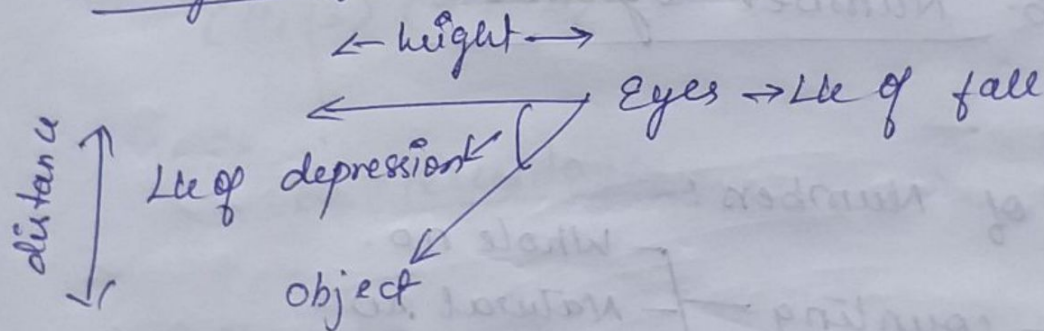 ← height →
Eyes → Lle of fall
distance
Lle of depression
object